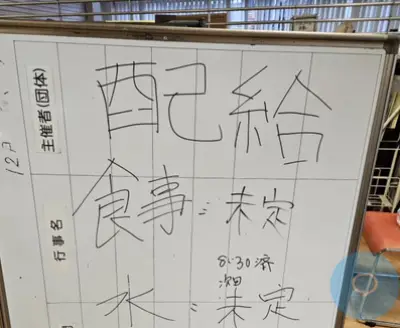 主催者(団体)
配給
行事名
食事:未定
8:30済
次回
水:未定